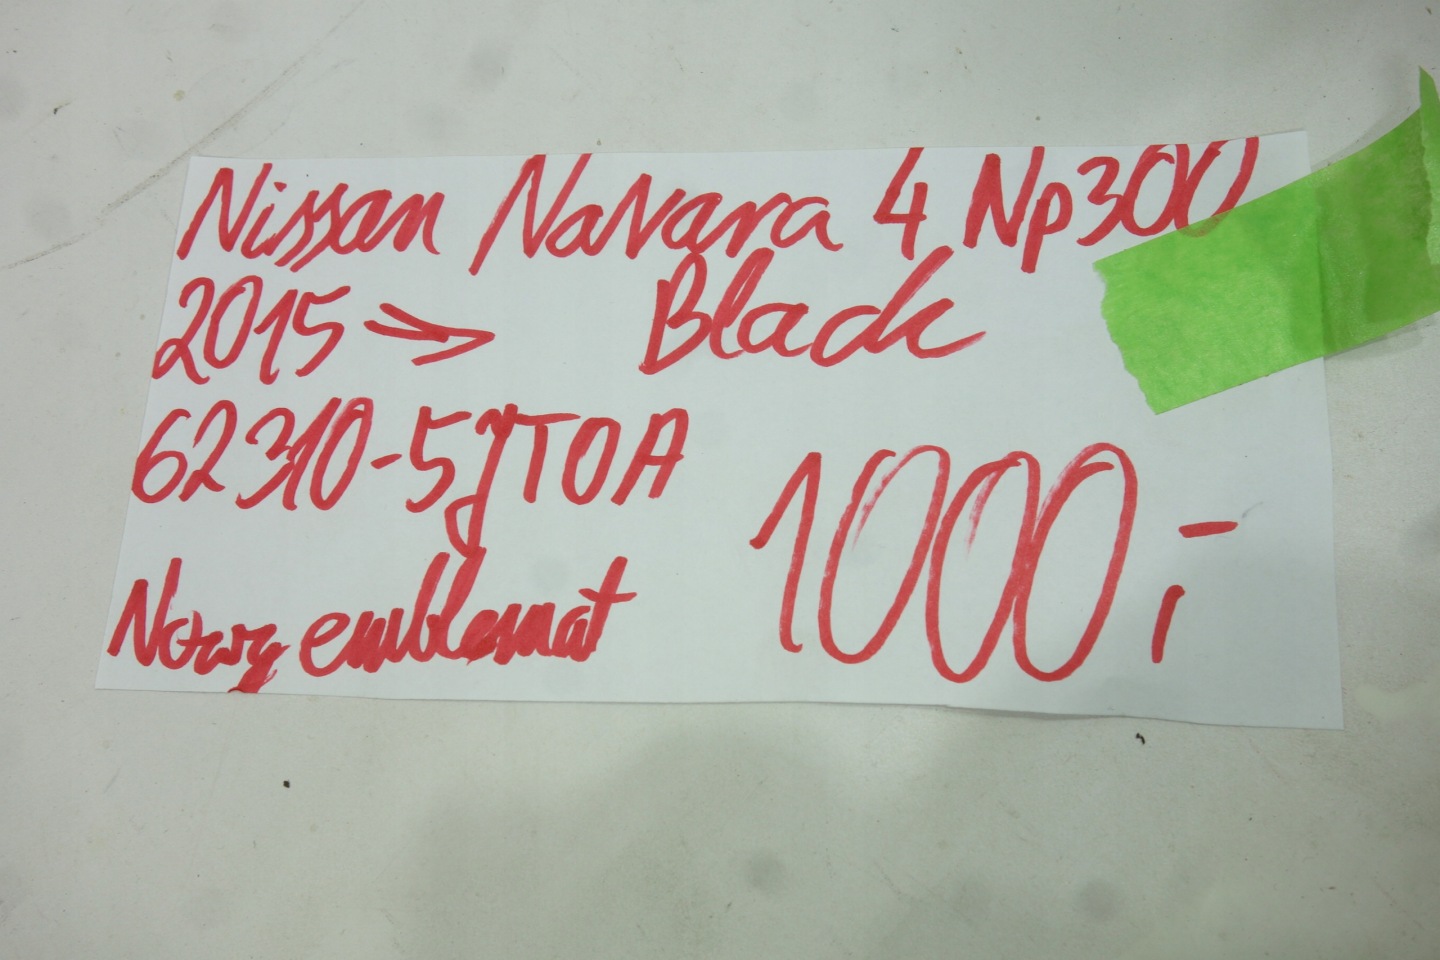 Nissan Navara 4 Np300
2015 → Black
62310-5jT0A
Nowy emblemat
1000,-